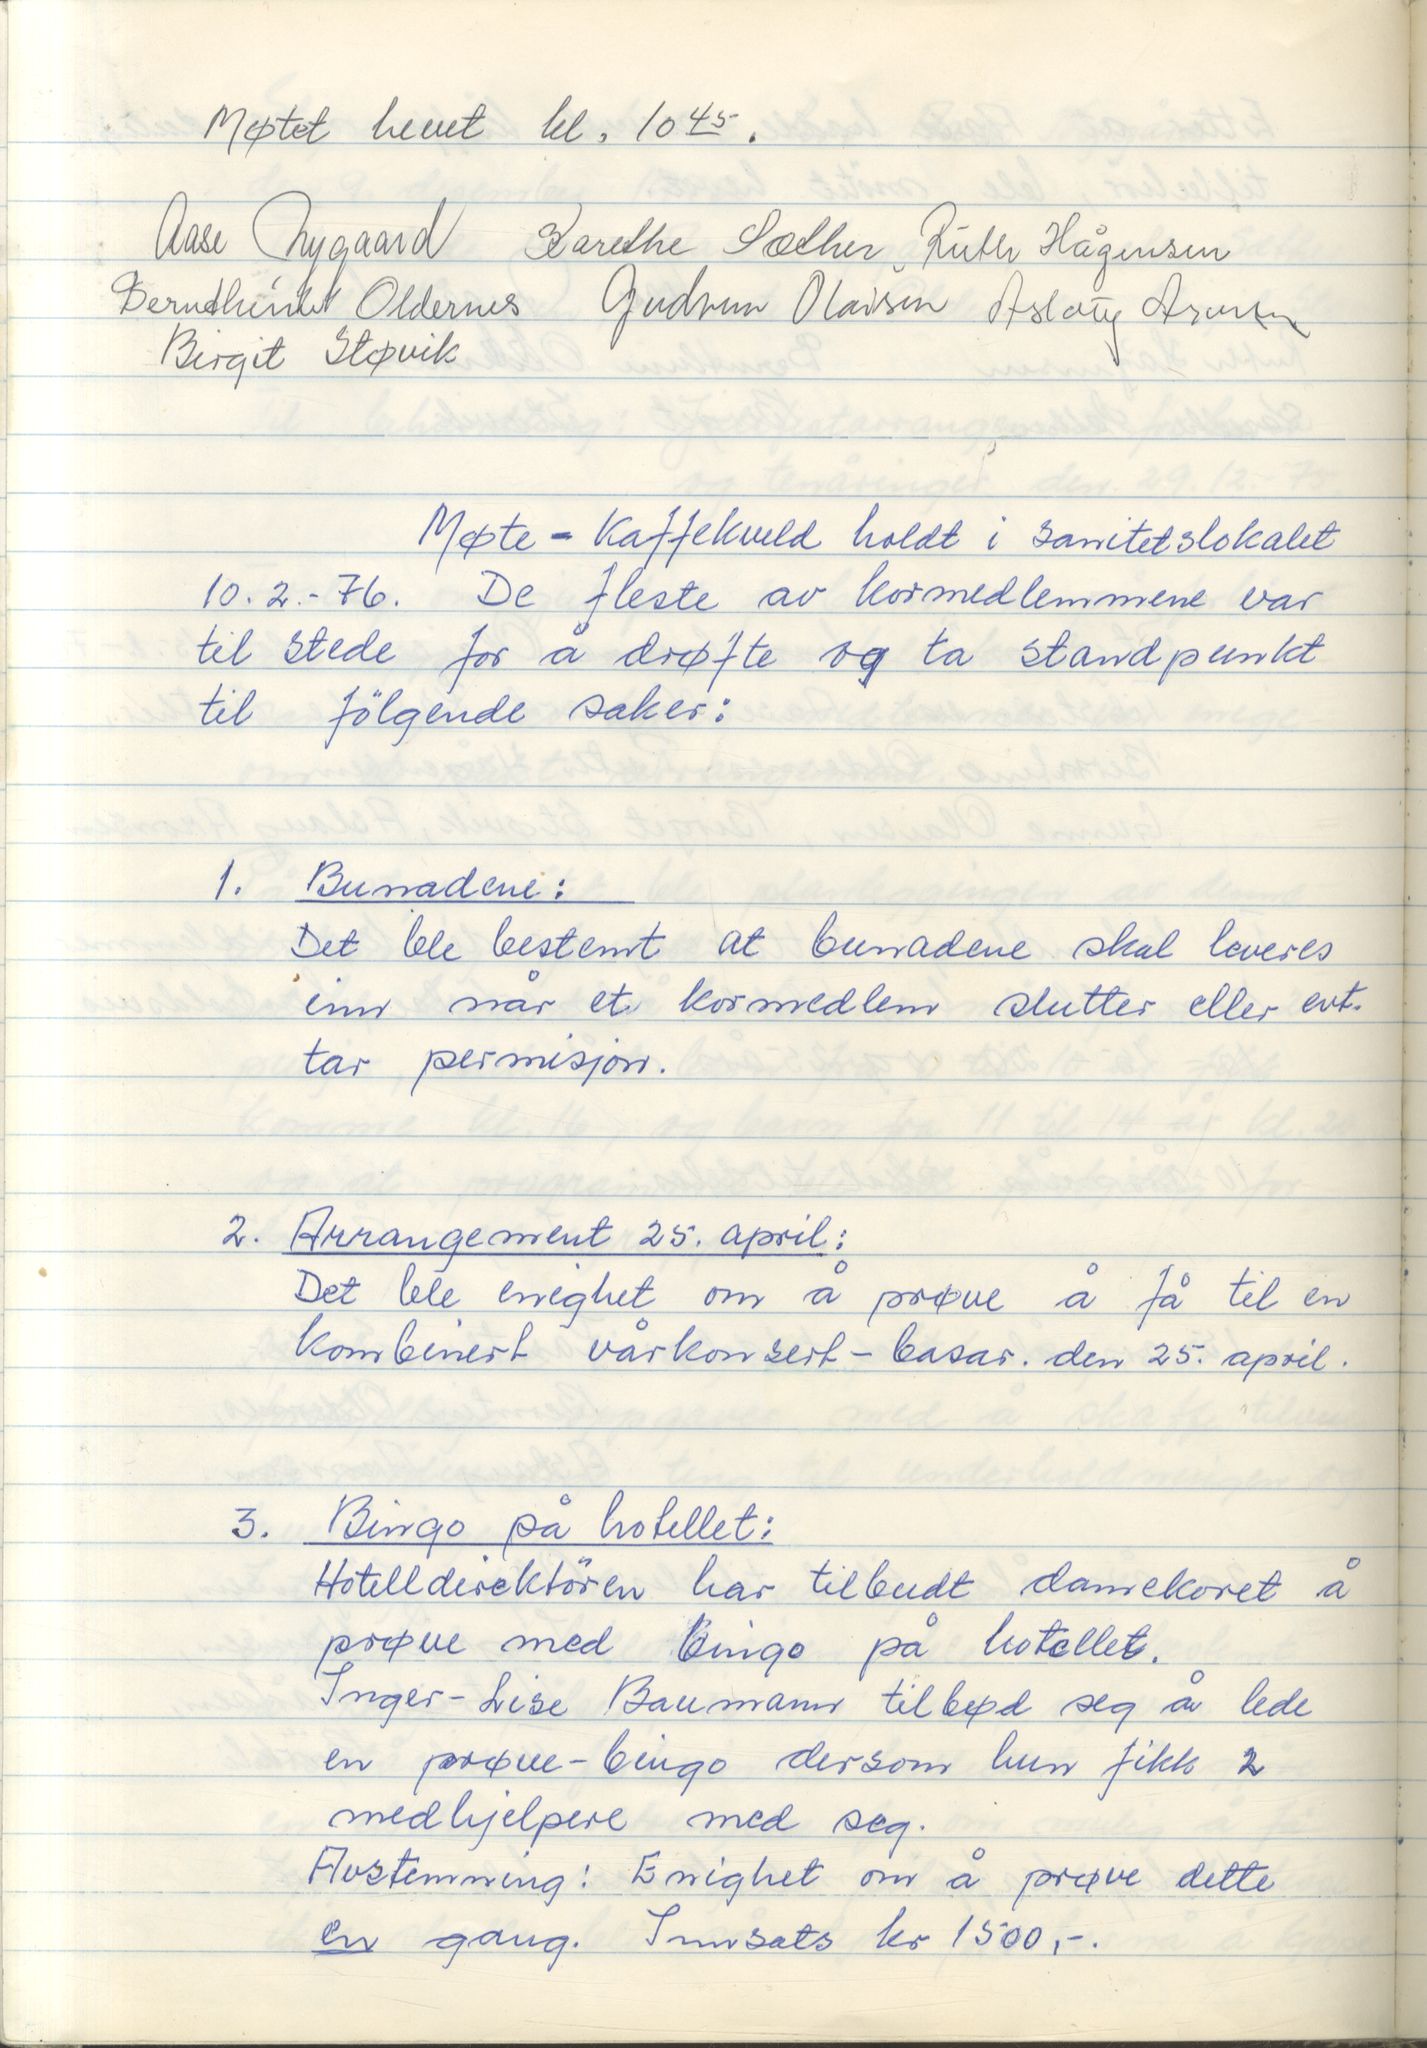 Møtet hevet kl. 10 45.
Aase Nygaard Karethe Sæther, Ruth Hågensen
Oldernes Gudrun Olaisen Aslaug
Birgit Støvik
Møte - Kaffekveld holdt i sanitetslokalet
10.2.-76. De fleste av kormedlemmene var
til stede for å drøfte og ta standpunkt
til følgende saker:
1. Bunadene:
Det ble bestemt at bunadene skal leveres
inn når et kormedlem slutter eller evt.
tar permisjon.
2. Arrangement 25. april:
Det ble enighet om å prøve å få til en
kombinert vårkonsert - basar. den 25. april.
3. Bingo på hotellet:
Hotelldirektören har tilbudt damekoret å
prøve med bingo på hotellet.
Inger-Lise Baumann tilbød seg å lede
en prøve-bingo dersom hun fikk 2
medhjelpere med seg.
Avstemning: Enighet om å prøve dette
en gang. Innsats kr 1500,-.